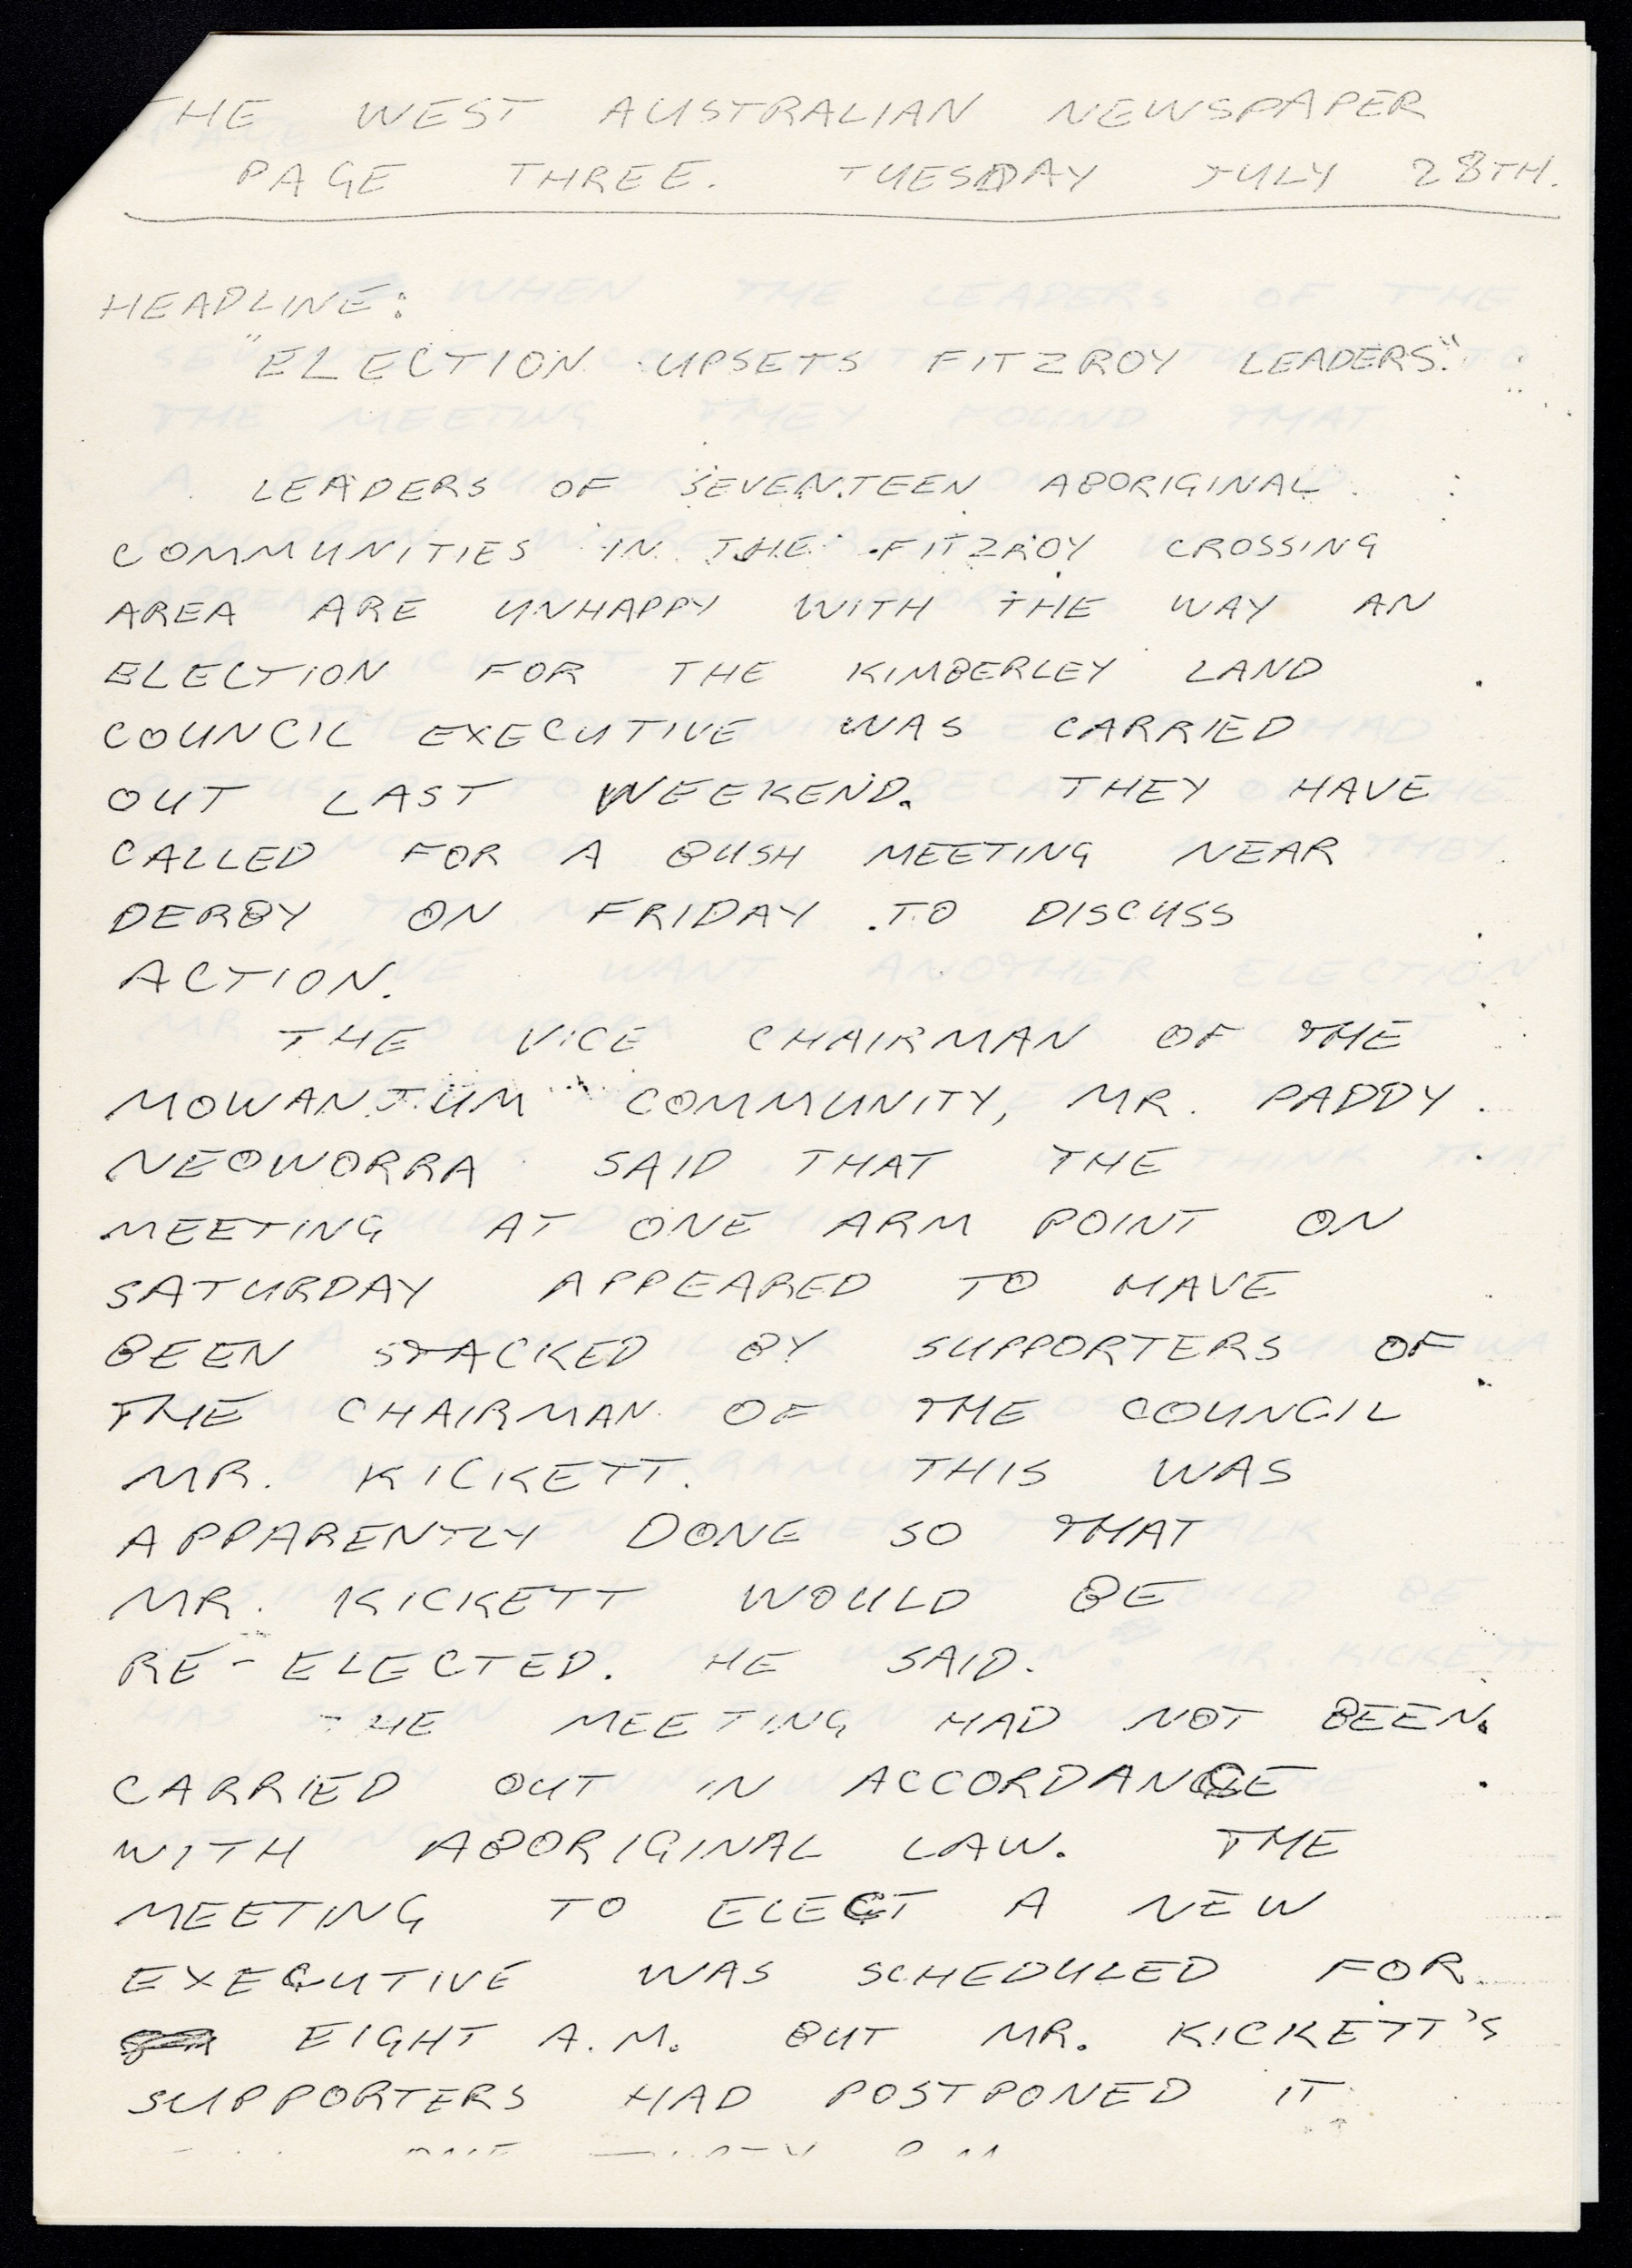 THE WEST AUSTRALIAN NEWSPAPER
PAGE THREE. TUESDAY JULY 28TH.
HEADLINE:
"ELECTION UPSETS FITZROY LEADERS."
LEADERS OF SEVENTEEN ABORIGINAL
COMMUNITIES IN THE FITZROY CROSSING
AREA ARE UNHAPPY WITH THE WAY AN
ELECTION FOR THE KIMBERLEY LAND
COUNCIL EXECUTIVE WAS CARRIED
OUT LAST WEEKEND. THEY HAVE
CALLED FOR A BUSH MEETING NEAR
DERBY ON FRIDAY TO DISCUSS
ACTION.
THE VICE CHAIRMAN OF THE
MOWANJUM COMMUNITY, MR. PADDY
NEOWORRA SAID THAT THE
MEETING AT ONE ARM POINT ON
SATURDAY APPEARED TO HAVE
BEEN STACKED BY SUPPORTERS OF
THE CHAIRMAN OF THE COUNCIL
MR. KICKETT. THIS WAS
APPARENTLY DONE SO THAT
MR. KICKETT WOULD BE
RE-ELECTED. HE SAID.
THE MEETING HAD NOT BEEN
CARRIED OUT IN ACCORDANCE
WITH ABORIGINAL LAW. THE
MEETING TO ELECT A NEW
EXECUTIVE WAS SCHEDULED FOR
EIGHT A.M. BUT MR. KICKETT'S
SUPPORTERS HAD POSTPONED IT